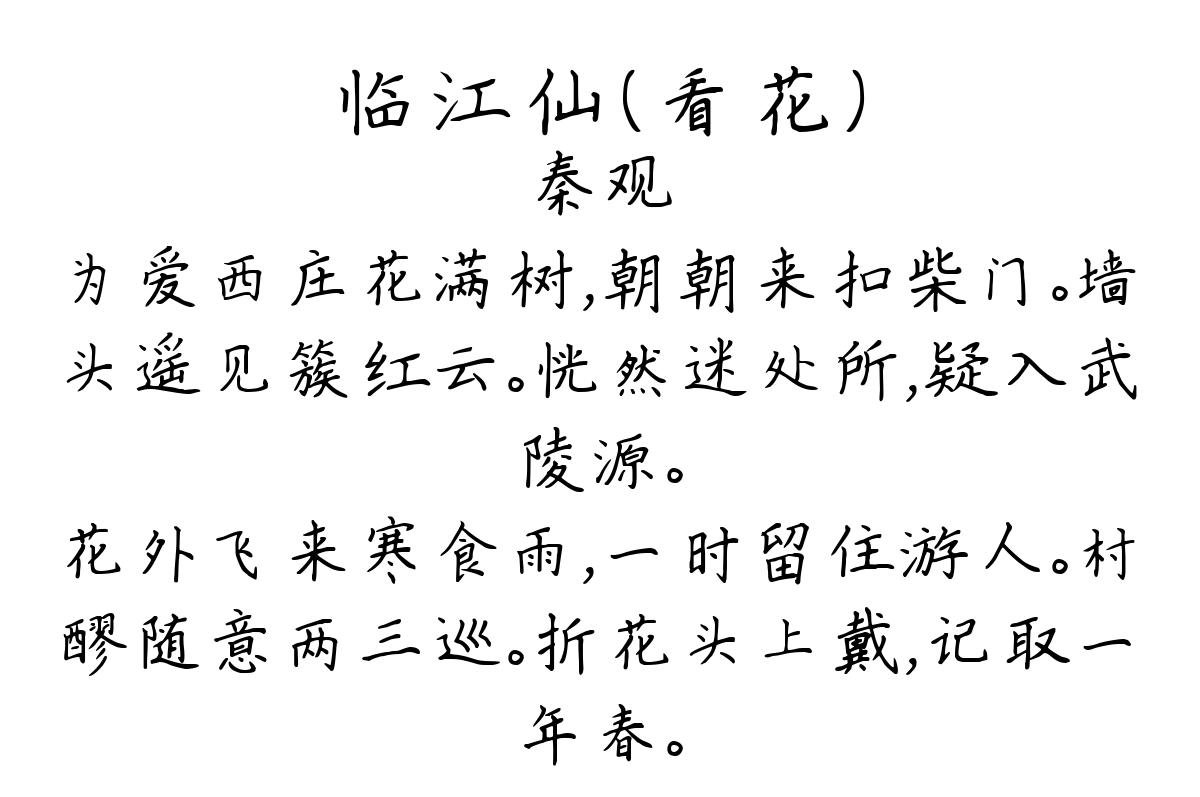 临江仙(看花)
秦观
为爱西庄花满树,朝朝来扣柴门。墙
头遥见簇红云。恍然迷处所,疑入武
陵源。
花外飞来寒食雨,一时留住游人。村
醪随意两三巡。折花头上戴,记取一
年春。